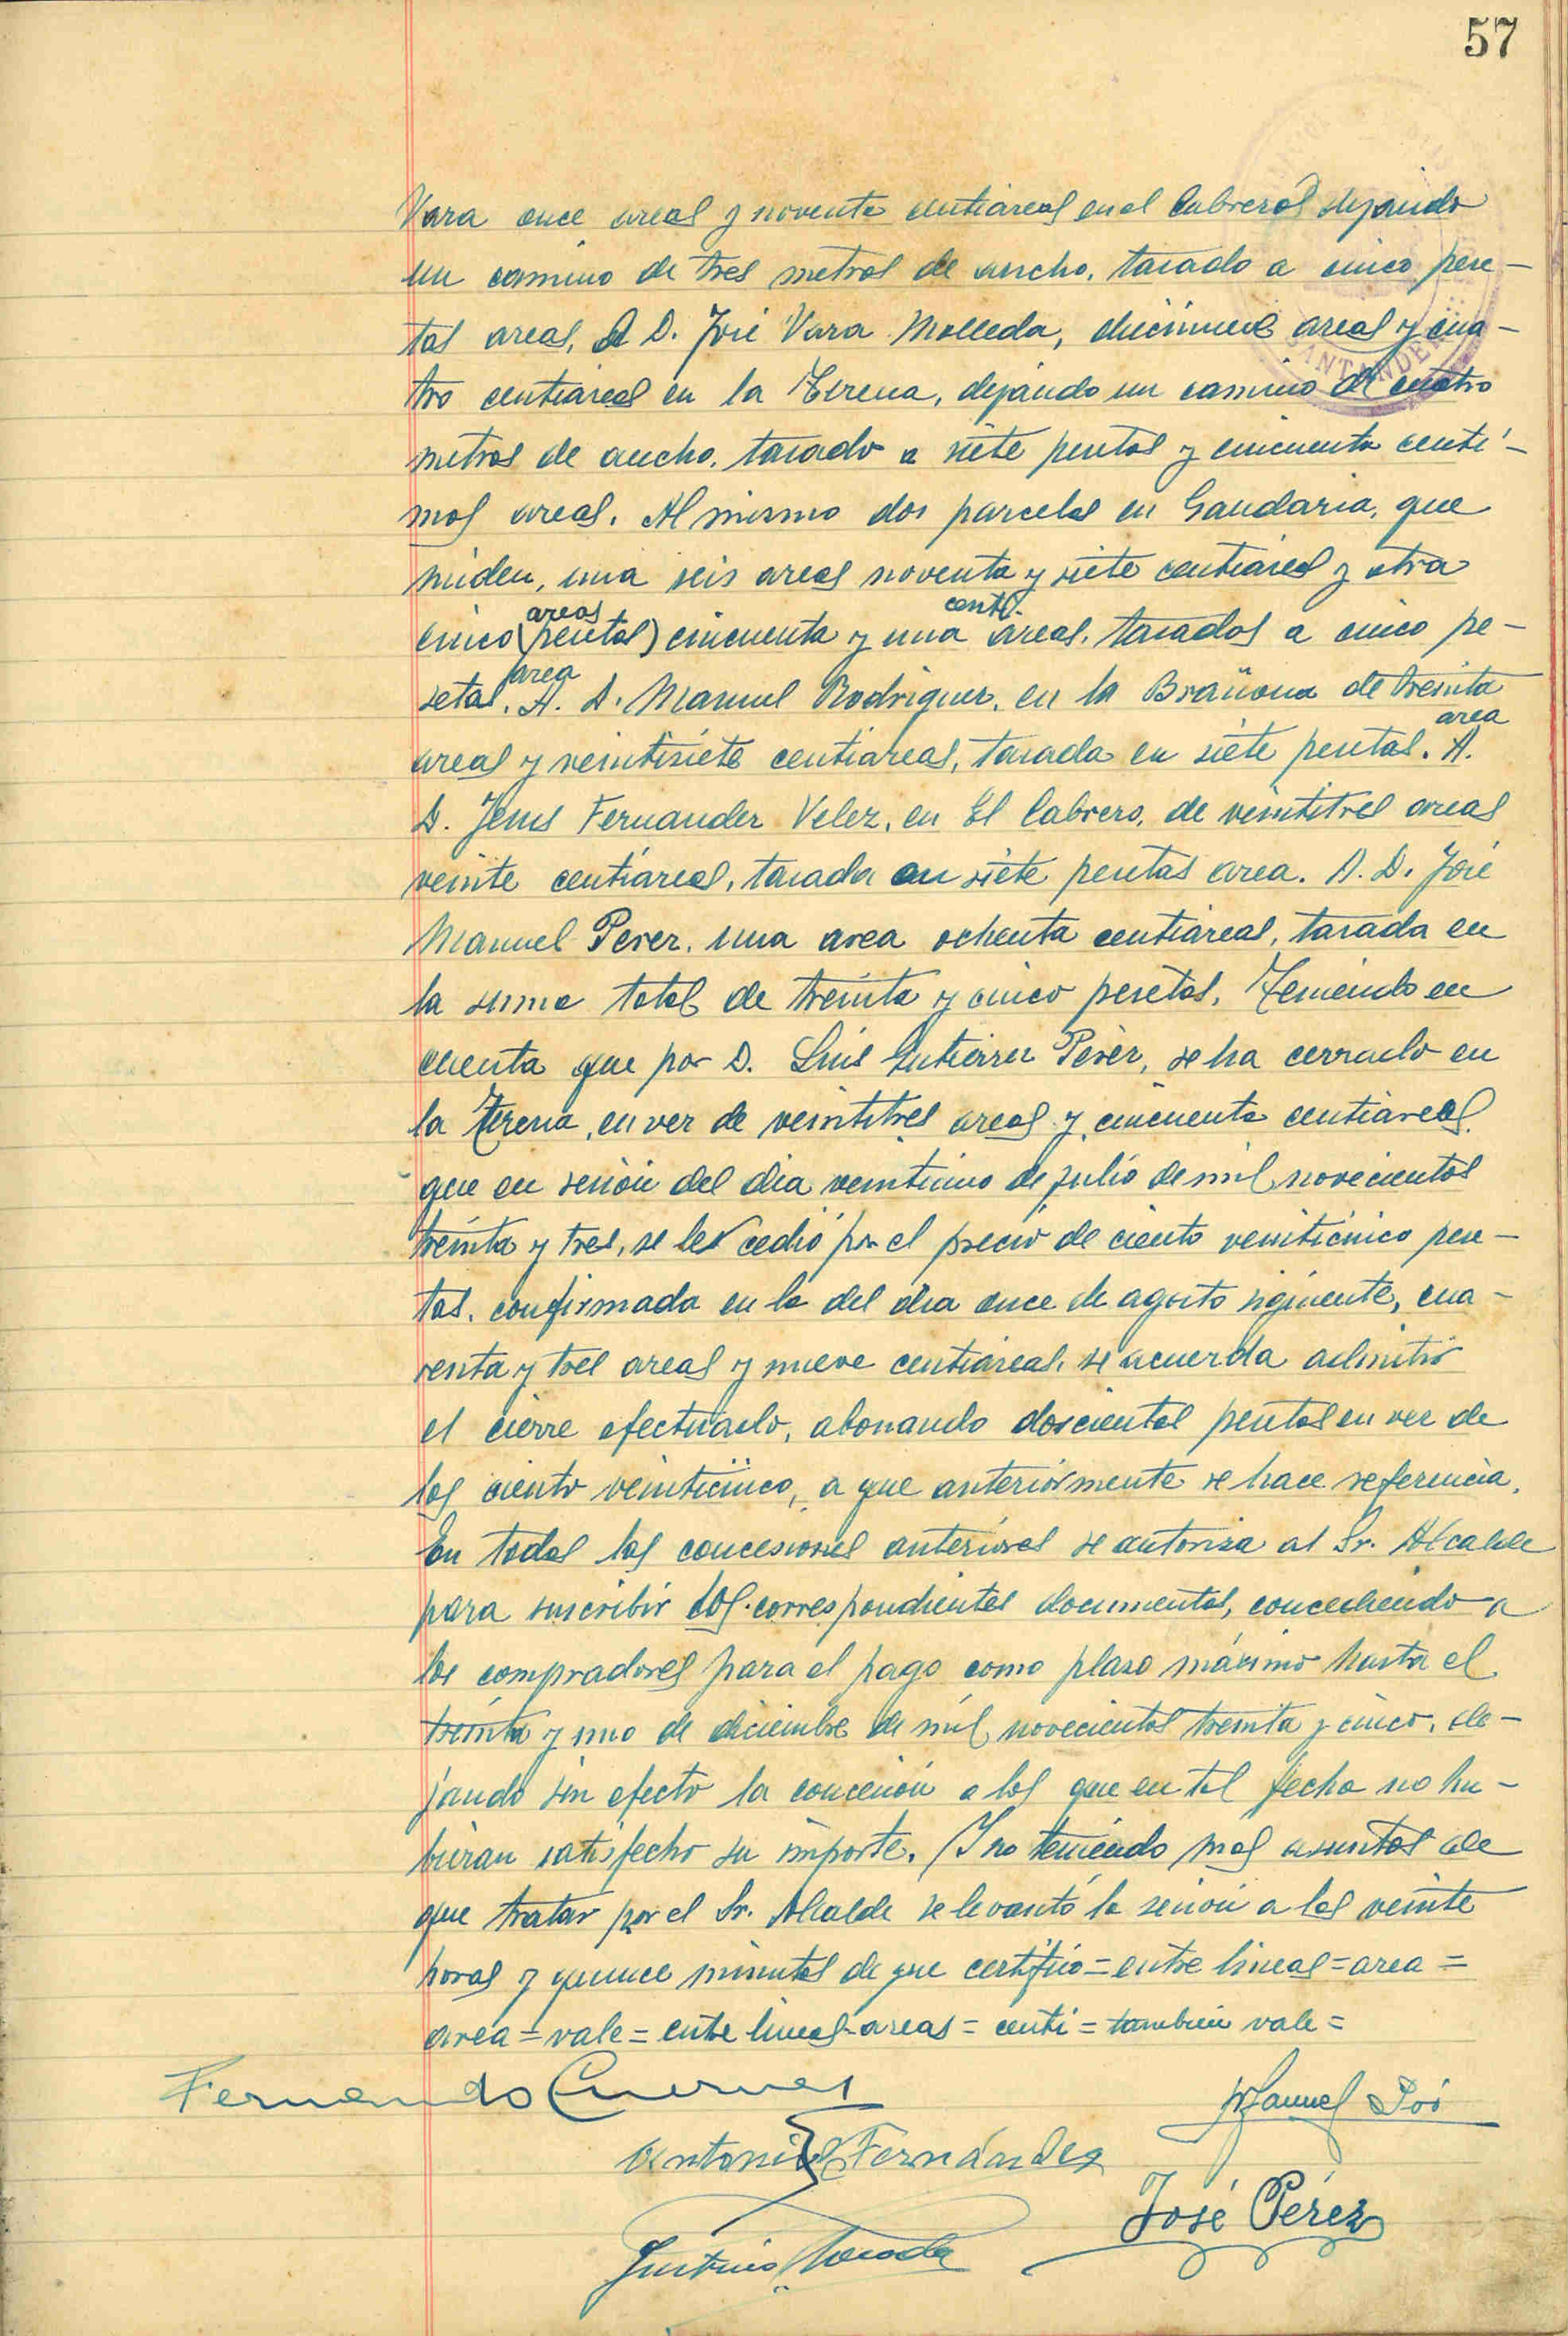 57
Vara once areas y noventa centiareas en el Cabrero, dejando
un camino de tres metros de ancho, tasado a cinco pese-
tas areas, A D. José Vara Molleda, diecinueve areas y cua-
tro centiareas en la Terena, dejando un camino de cuatro
metros de ancho, tasado a siete pesetas y cincuenta centi-
mos areas. Al mismo dos parcelas en Gandaria, que
miden, una seis areas noventa y siete centiareas y otra
areas centi-
cinco (pesetas) cincuenta y una areas, tasados a cinco pe-
area
setas. A. D. Manuel Rodriguez, en la Brañona de treinta
area
areas y veintisiete centiareas, tasada en siete pesetas. A.
D. Jesus Fernandez Velez, en El Cabrero, de veintitres areas
veinte centiareas, tasada en siete pesetas area. A. D. José
Manuel Perez, una area ochenta centiareas, tasada en
la suma total de treinta y cinco pesetas. Teniendo en
cuenta que por D. Luis Gutierrez Perez, se ha cerrado en
la Terena, en vez de veintitres areas y cincuenta centiareas
que en sesión del dia veinticinco de julio de mil novecientos
treinta y tres, se les cedió por el precio de ciento veinticinco pese-
tas, confirmada en la del dia once de agosto siguiente, cua-
renta y tres areas y nueve centiareas, se acuerda admitir
el cierre efectuado, abonando doscientas pesetas en vez de
las ciento veinticinco, a que anteriormente se hace referencia.
En todas las concesiones anteriores se autoriza al Sr. Alcalde
para suscribir los correspondientes documentos, concediendo a
los compradores para el pago como plazo máximo hasta el
treinta y uno de diciembre de mil novecientos treinta y cinco, de-
jando sin efecto la concesión a los que en tal fecha no hu-
bieran satisfecho su importe. Y no teniendo mas asuntos de
que tratar por el Sr. Alcalde se levantó la sesión a las veinte
horas y quince minutos de que certifico=entre lineas=area=
area=vale=entre lineas-areas=centi=también vale=
Fernando Cuevas
Manuel
Antonio Fernández
José Pérez